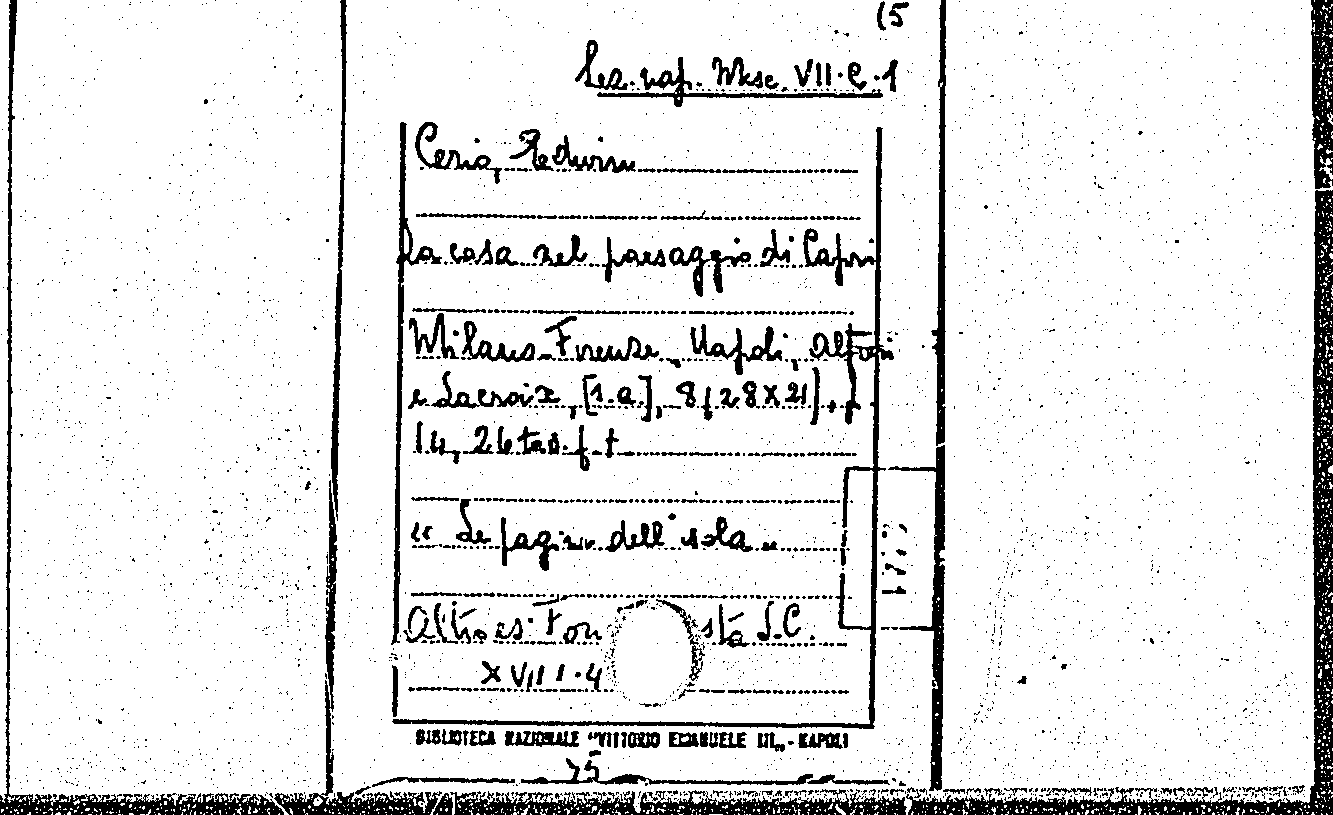 (5
Sez. nap. Misc. VII. C. 1
Cerio, Edwin
La casa nel paesaggio di Capri
Milano-Firenze, Napoli, Alfieri
e Lacroix, [s.a.], 8 (28x21), p.
14, 26 tav. f. t.
« Le pagine dell'isola »
Altro es. Fon sta S.C.
XVIII.4
BIBLIOTECA NAZIONALE "VITTORIO EMANUELE III„ - NAPOLI
75